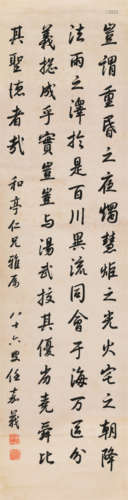 豈謂重昏之夜燭慧炬之光火宅之朝降
法雨之澤於是百川異流同會于海万區分
義總成乎實豈與湯武校其優劣堯舜比
其聖德者哉
和亭仁兄雅屬
八十六叟任嘉義